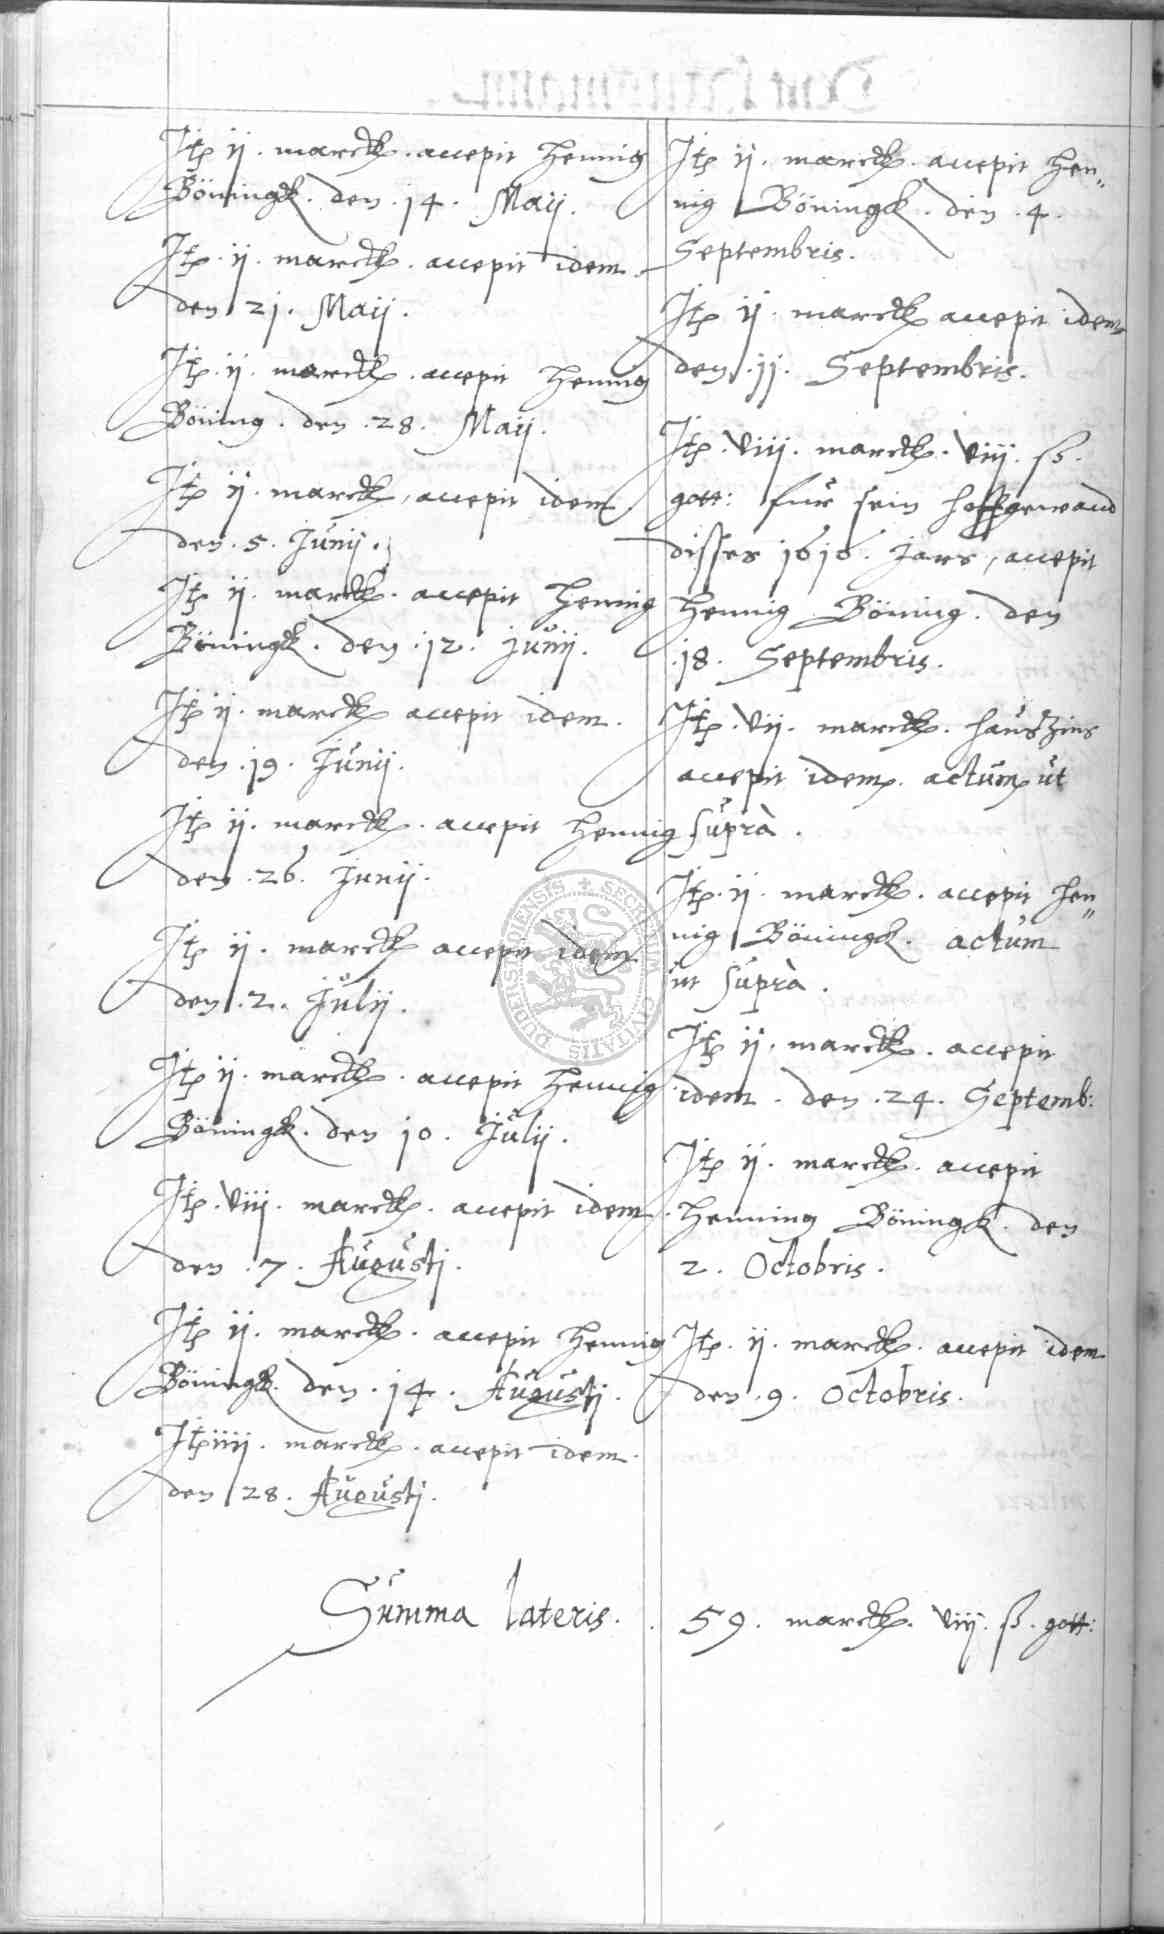 Itp ij. marck. accepit Hennig
Böningk. den .14. Maij.
Itp. ij. marck. accepit idem.
den 21. Maij.
Itp. ij. marck. accepit Hennig
Böning. den .28. Maij.
Itp ij. marck, accepit idem
den .5. Junij.
Itp ij. marck. accepit Hennig
Böningk. den .12. junij.
Itp ij. marck accepit idem.
den .19. Junij.
Itp ij. marck. accepit Hennig
den .26. Junij.
Itp ij. marck accepit idem
den .2. Julij.
Itp ij. marck. accepit Hennig
Böningk. den 10. Julij.
Itp. viij. marck. accepit idem.
den .7. Augustj.
Itp ij. marck. accepit Hennig
Böningk. den .14. Augustj.
Itp iiij. marck. accepit idem.
den 28. Augustj.
Summa lateris.
Itp ij. marck. accepit Hen„
nig Böningk. den .4.
Septembris.
Itp ij. marck accepit idem
den .11. Septembris.
Itp. viij. marck. viij. ß.
gott: für sein hoffgewand
disses 1616. jars, accepit
Hennig Böning. den
.18. Septembris.
Itp. vij. marck. hausZins
accepit idem. actum ut
supra.
Itp. ij. marck. accepit Hen„
nig Böningk. actum
ut supra.
Itp ij. marck. accepit
idem. den .24. Septemb:
Itp ij. marck. accepit
Henning Böningk. den
2. Octobris.
Itp. ij. marck. accepit idem
den .9. Octobris.
59. marck. viij. ß. gott:
SECRETUM CIVITATIS DUDERSTADENSIS